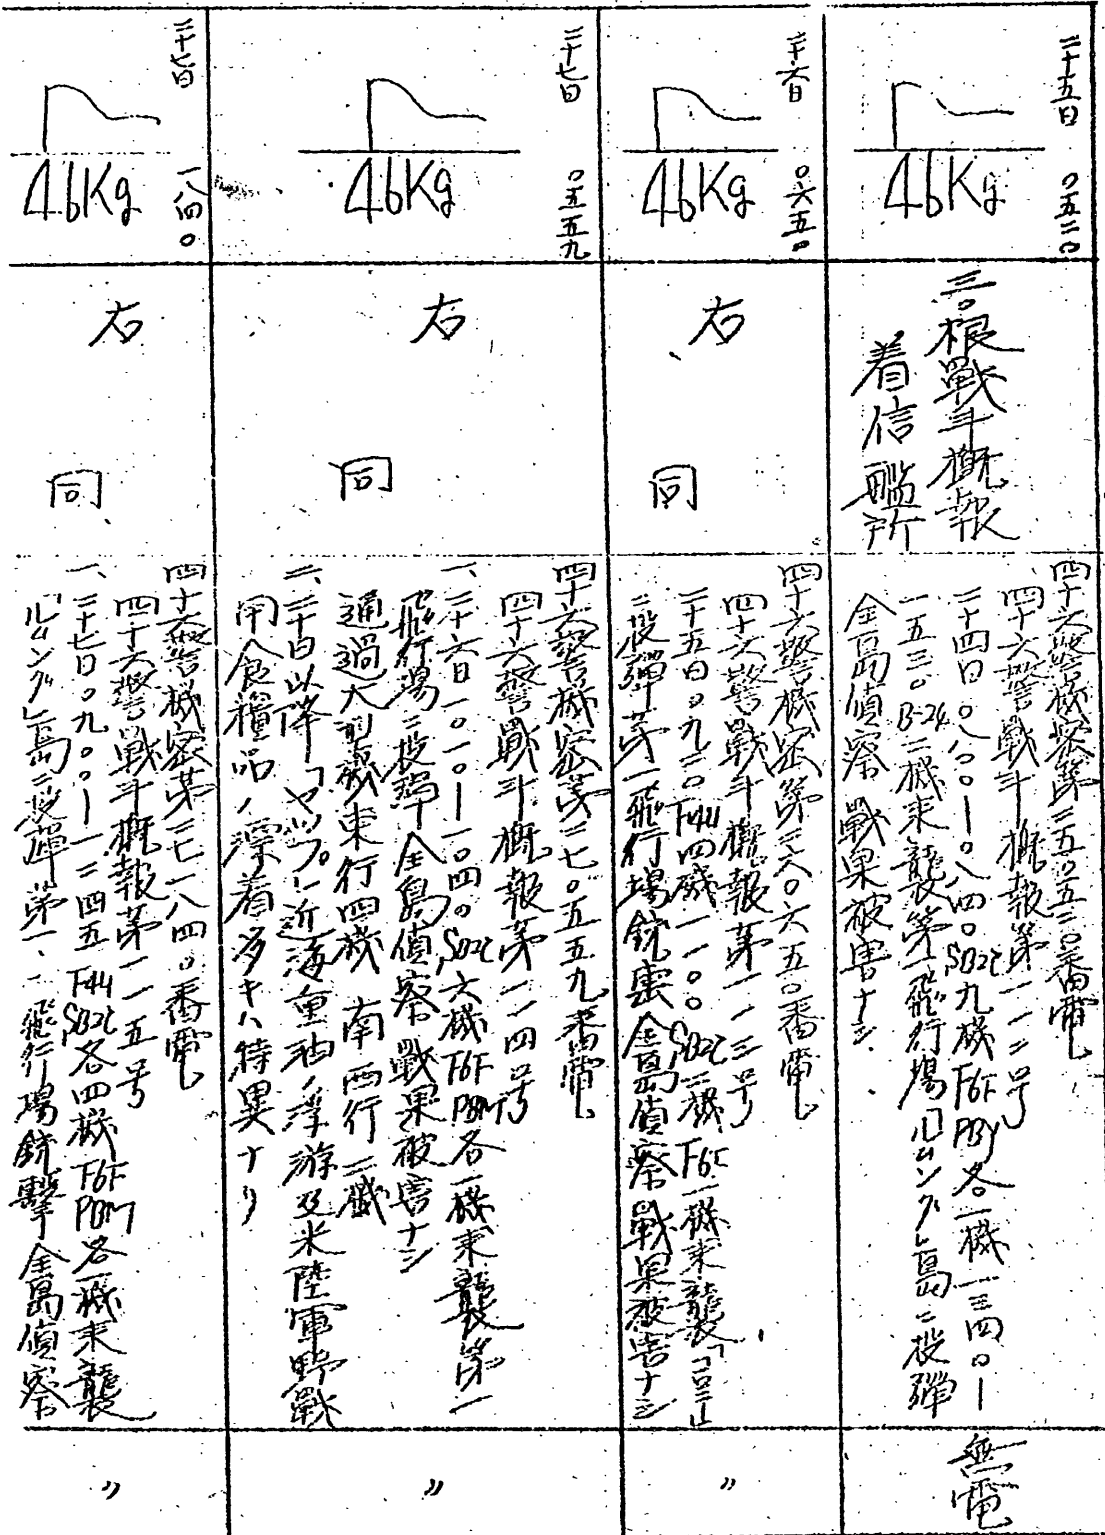 二十五日 〇五二〇
46Kg
三〇根戰斗概報
着信艦所
四十六警機密第二五〇五二〇番電
四十六警戰斗概報第一一二号
二十四日〇八〇〇ー〇八四〇SB2C九機F6F PBY各一機一三四〇ー
一五三〇B-24二機来襲第一飛行場「ルムング」島ニ投彈
全島偵察 戰果被害ナシ
無電
二十六日 〇六五〇
46Kg
右 同
四十六警機密第二六〇六五〇番電
四十六警戰斗概報第一一三号
二十五日〇九二〇F4U四機一一〇〇SB2C二機F6F一機来襲「コロニー」
ニ投彈第一飛行場銃撃全島偵察戰果被害ナシ
〃
二十七日 〇五五九
46Kg
右 同
四十六警機密第二七〇五五九番電
四十六警戰斗概報第一一四号
一、二十六日一〇一〇ー一〇四〇SB2C六機F6F PBM各一機来襲第一
飛行場ニ投彈全島偵察戰果被害ナシ
通過大型機東行四機 南西行二機
二、二十日以降「ヤップ」近海重油ノ浮游及米陸軍野戰
用食糧品ノ漂着多キハ特異ナリ
〃
二十七日 一八四〇
46Kg
右 同
四十六警機密第二七一八四〇番電
四十六警戰斗概報第一一五号
一、二十七日〇九〇〇ー一二四五F4U SB2C各四機F6F PBM各一機来襲
「ルムング」島ニ投彈第一、一飛行場銃擊全島偵察
〃